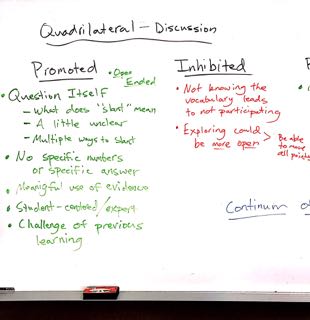 Quadrilateral - Discussion
Promoted
• Open
Ended
• Question Itself
- What does "slant" mean
- A little unclear
- Multiple ways to start
• No specific numbers
or specific answer
• Meaningful use of evidence
• Student-centered/expert
• Challenge of previous
learning
Inhibited
• Not knowing the
vocabulary leads
to not participating
• Exploring could
be more open
> Be able
to move
all points
Continuum